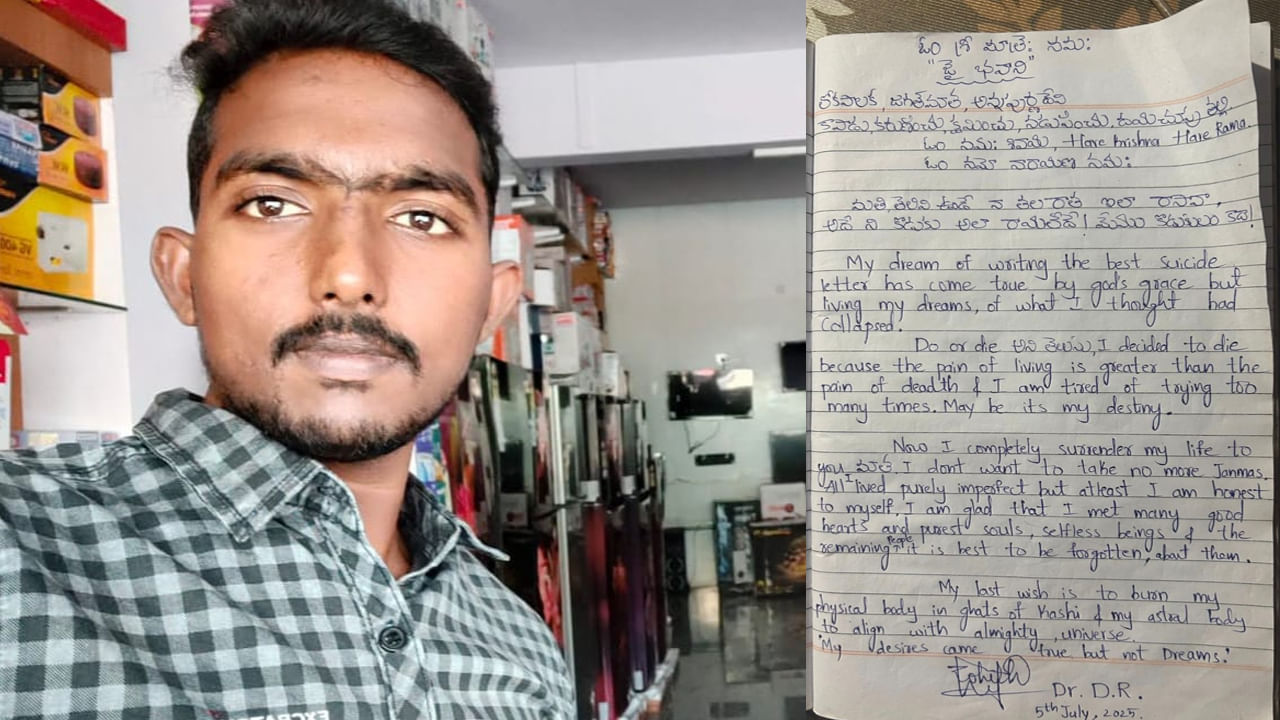 ఓం శ్రీ మాత్రే నమః
"జై భవాని"
లోకపాలక, జగత్‌మాత, అన్నపూర్ణ దేవి
కాపాడు, కరుణించు, క్షమించు, నడుపించు, దయ చూపు తల్లి
ఓం నమః శివాయ, Hare krishna Hare Rama.
ఓం నమో నారాయణ నమః
రాసినా,
అదే ని కొడుకు అలా రాయలేదే!
My dream of writing the best suicide
letter has come true by god's grace but
living my dreams, of what I thought had
collapsed.
Do or die అని తెలుసు, I decided to die
because the pain of living is greater than the
pain of deadth & I am tired of trying too
many times. May be its my destiny.
Now I completely surrender my life to
you మాత, I dont want to take no more Janmas.
All I lived purely imperfect but atleast I am honest
to myself, I am glad that I met many good
hearts and purest souls, selfless beings & the
remaining people it is best to be forgotten, about them.
My last wish is to burn my
physical body in ghats of Kashi & my astral body
to align with almighty, universe.
'My desires came true but not Dreams.'
Dr. D.R.
5th July, 2025.